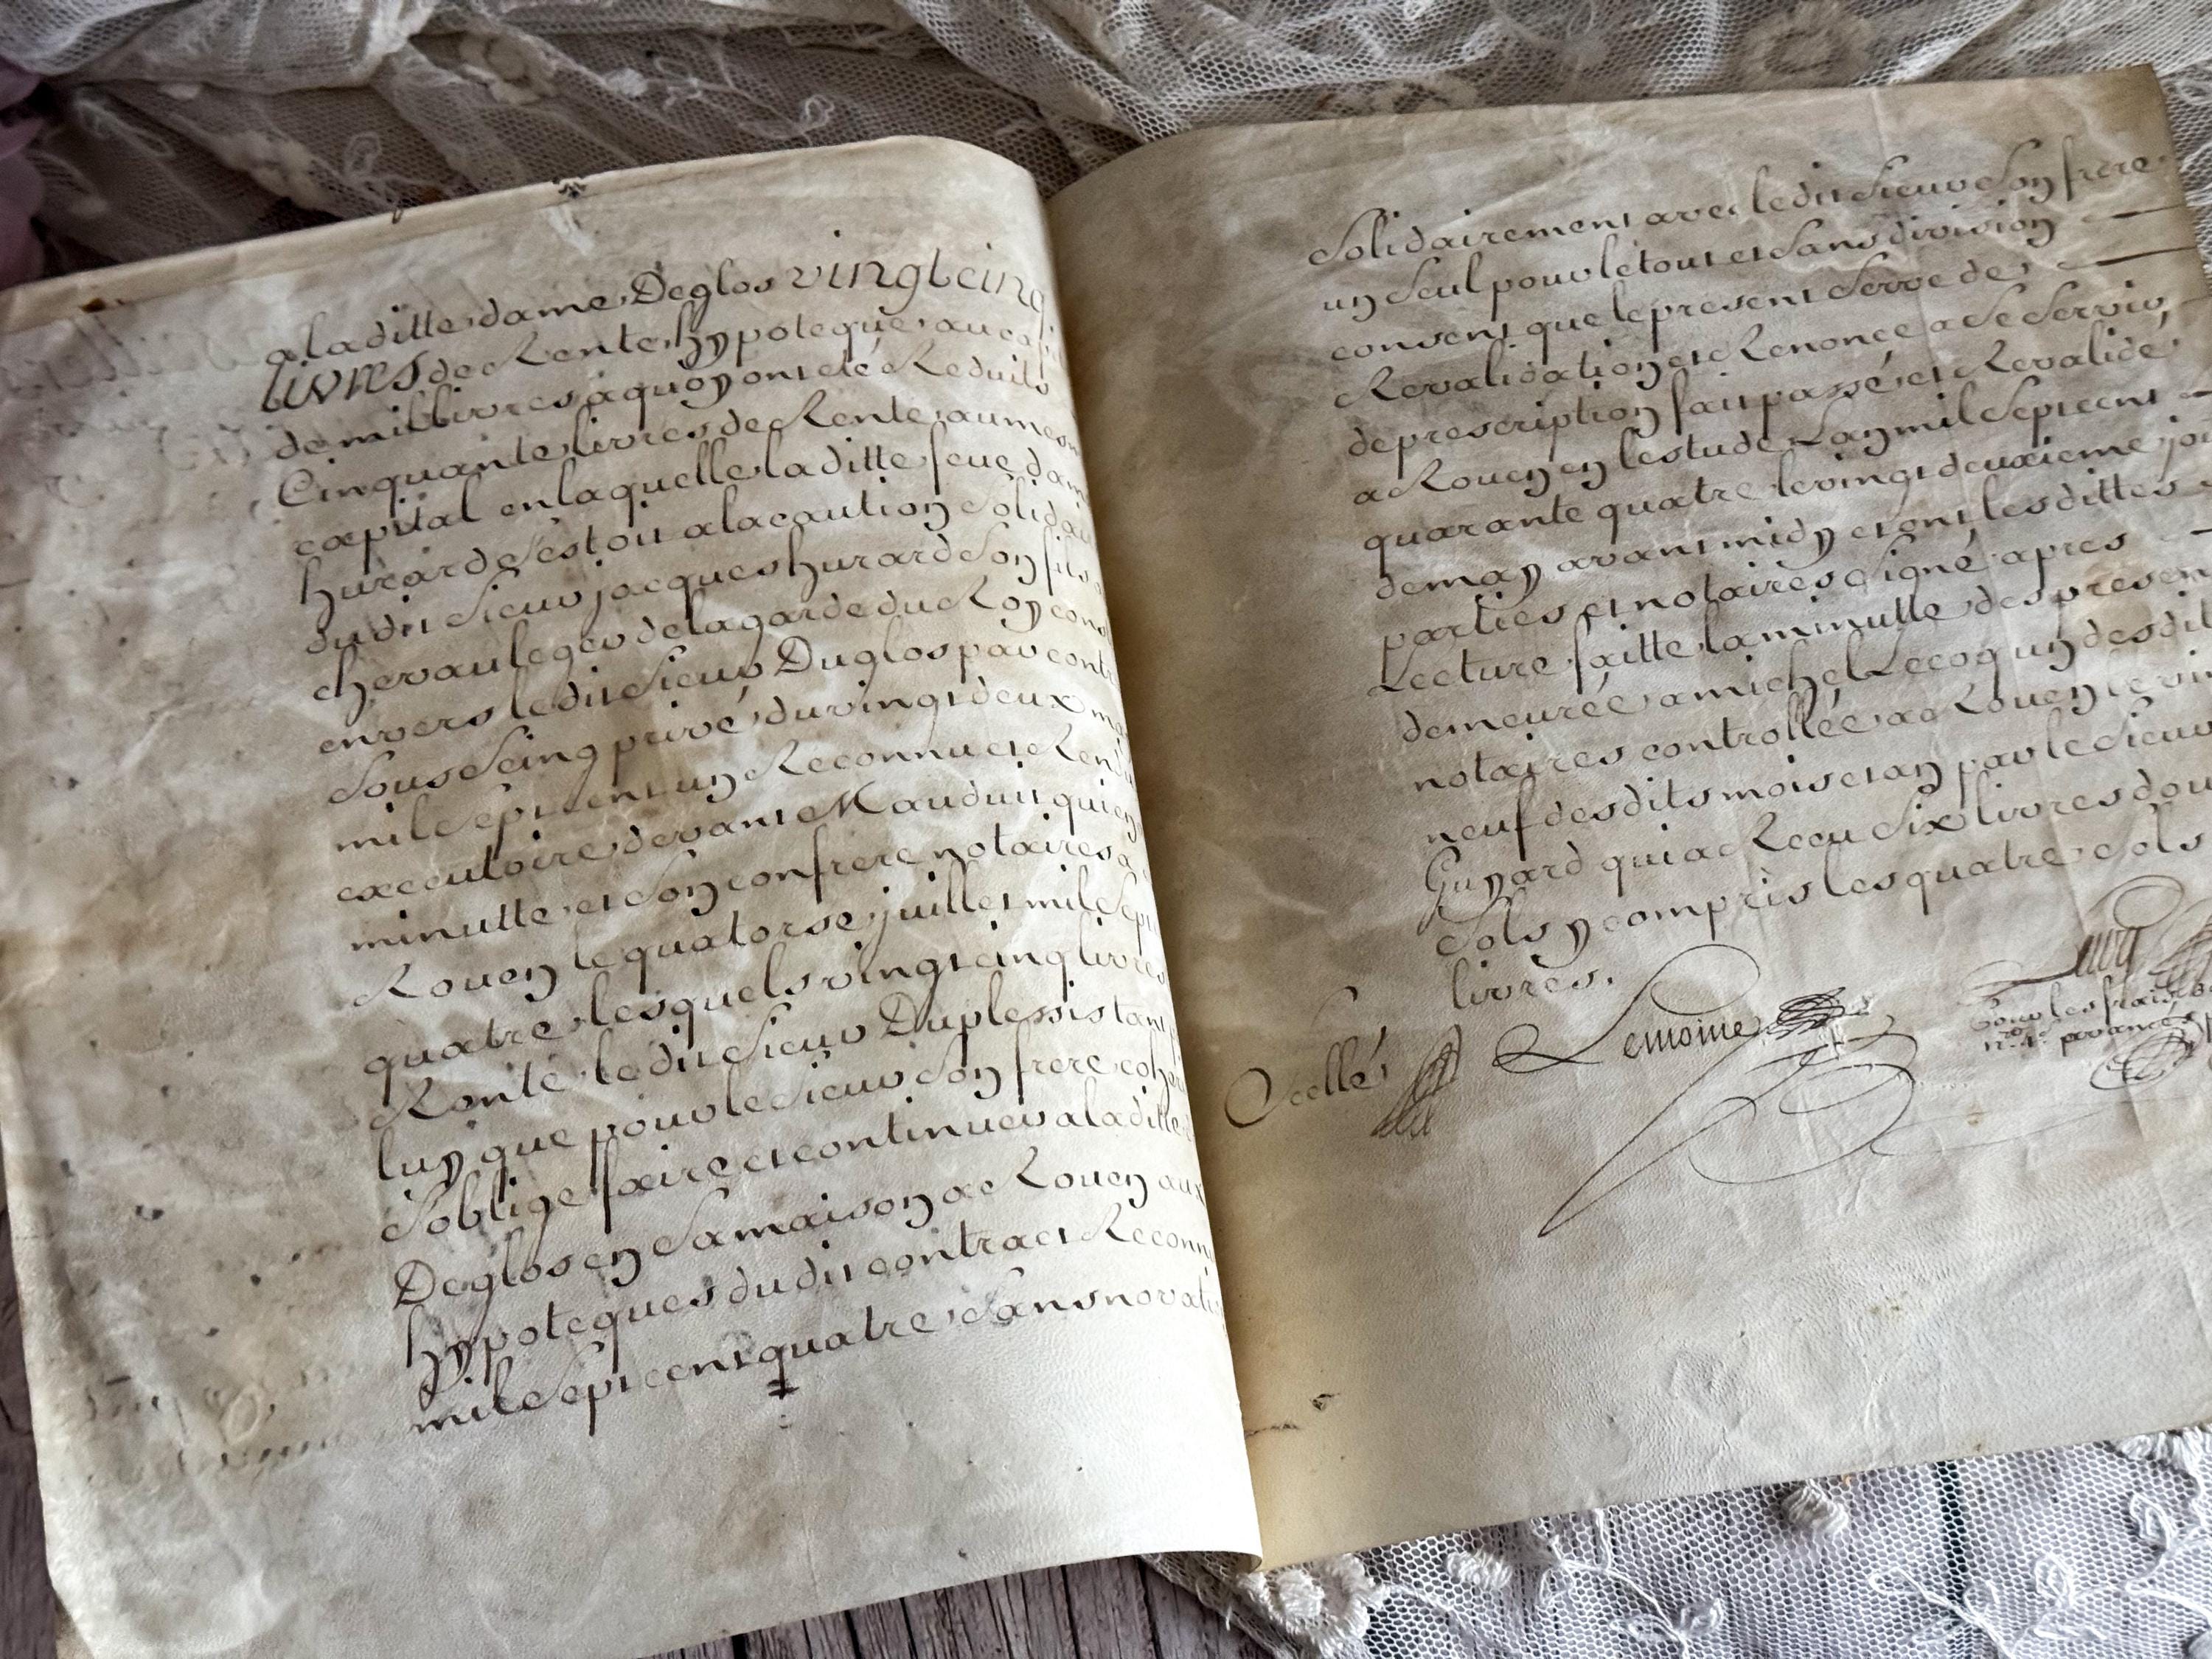 a la ditte dame Deglos vingt cinq
livres de Rente hypoteque au capi
de mil livres a quoy ont été Reduits
Cinquante livres de Rente au mesm
capital en laquelle la ditte feue dam
hurard s'estoit a la caution solidai
du dit sieur jacques hurard son fils
chevauleger de la garde du Roy cons
envers le dit sieur Duglos par contr
sous seing privé du vingt deux ma
mil sept cent un Reconnu et Rendu
executoire devant Mauduit qui en
minutte et son confrere notaires a
Rouen le quatorse juillet mil sept
quatre lesquels vingt cinq livres
Rente le dit sieur Duplessis tant p
luy que pour le sieur son frere coher
s'oblige faire et continuer a la ditte
Deglos en sa maison a Rouen aux
hypoteques du dit contract Reconnu
mil sept cent quatre sans novati
Solidairement avec le dit sieur son frere
un seul pour le tout et sans division
consent que le present serve de
Revalidation et Renonce a se servir
de prescription fait passé et Revalidé
a Rouen en l'estude L'an mil sept cent
quarante quatre le vingt deuxieme jou
de may avant midy et ont les dittes
parties et notaires signé apres
Lecture faitte la minutte des presen
demeurée a michel Lecoq un des dit
notaires controllée a Rouen le vin
neuf des dits mois et an par le sieur
Guyard qui a Recu six livres dou
sols y compris les quatre sols
livres.
Scellé
Lemoine
Pour les frais